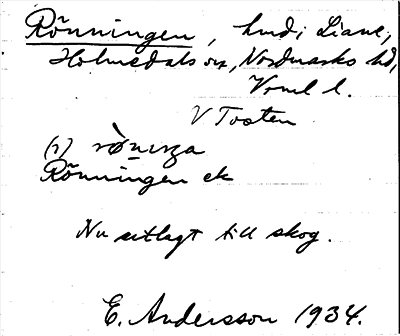 Rönningen, hmd i Liane,
Holmedals sn, Nordmarks hd,
Vrml l.
V Tosten
(1)
Rönningen ek
Nu utlagt till skog.
E. Andersson 1934.